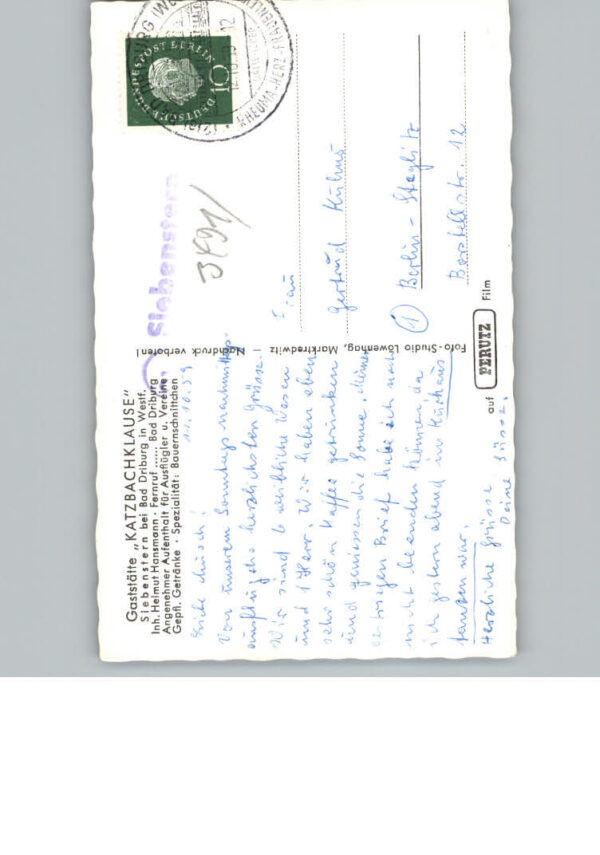 Gaststätte „KATZBACHKLAUSE"
Siebenstern bei Bad Driburg in Westf.
Inh. Helmut Hansmann · Fernruf ...... Bad Driburg
Angenehmer Aufenthalt für Ausflügler u. Vereine
Gepfl. Getränke · Spezialität: Bauernschnittchen
11.10.59
Von unserem Sonntags nachmittags-
ausflug die herzlichsten Grüsse.
Wir sind 6 weibliche Wesen
und 1 Herr. Wir haben eben
sehr schön Kaffee getrunken
und geniessen die Sonne. Meinen
Brief habe ich noch
nicht beenden können da
ich gestern abend im Kurhaus
tanzen war.
Herzliche Grüsse
Deine
Foto-Studio Löwenhag, Marktredwitz — Nachdruck verboten!
auf PERUTZ Film
Siebenstern
3491/
DEUTSCHE BUNDESPOST BERLIN
10
RHEUMA-HERZ-FRAUENLEIDEN
Frau
Gertrud Kühne
(1) Berlin - Steglitz
Borstellstr. 12